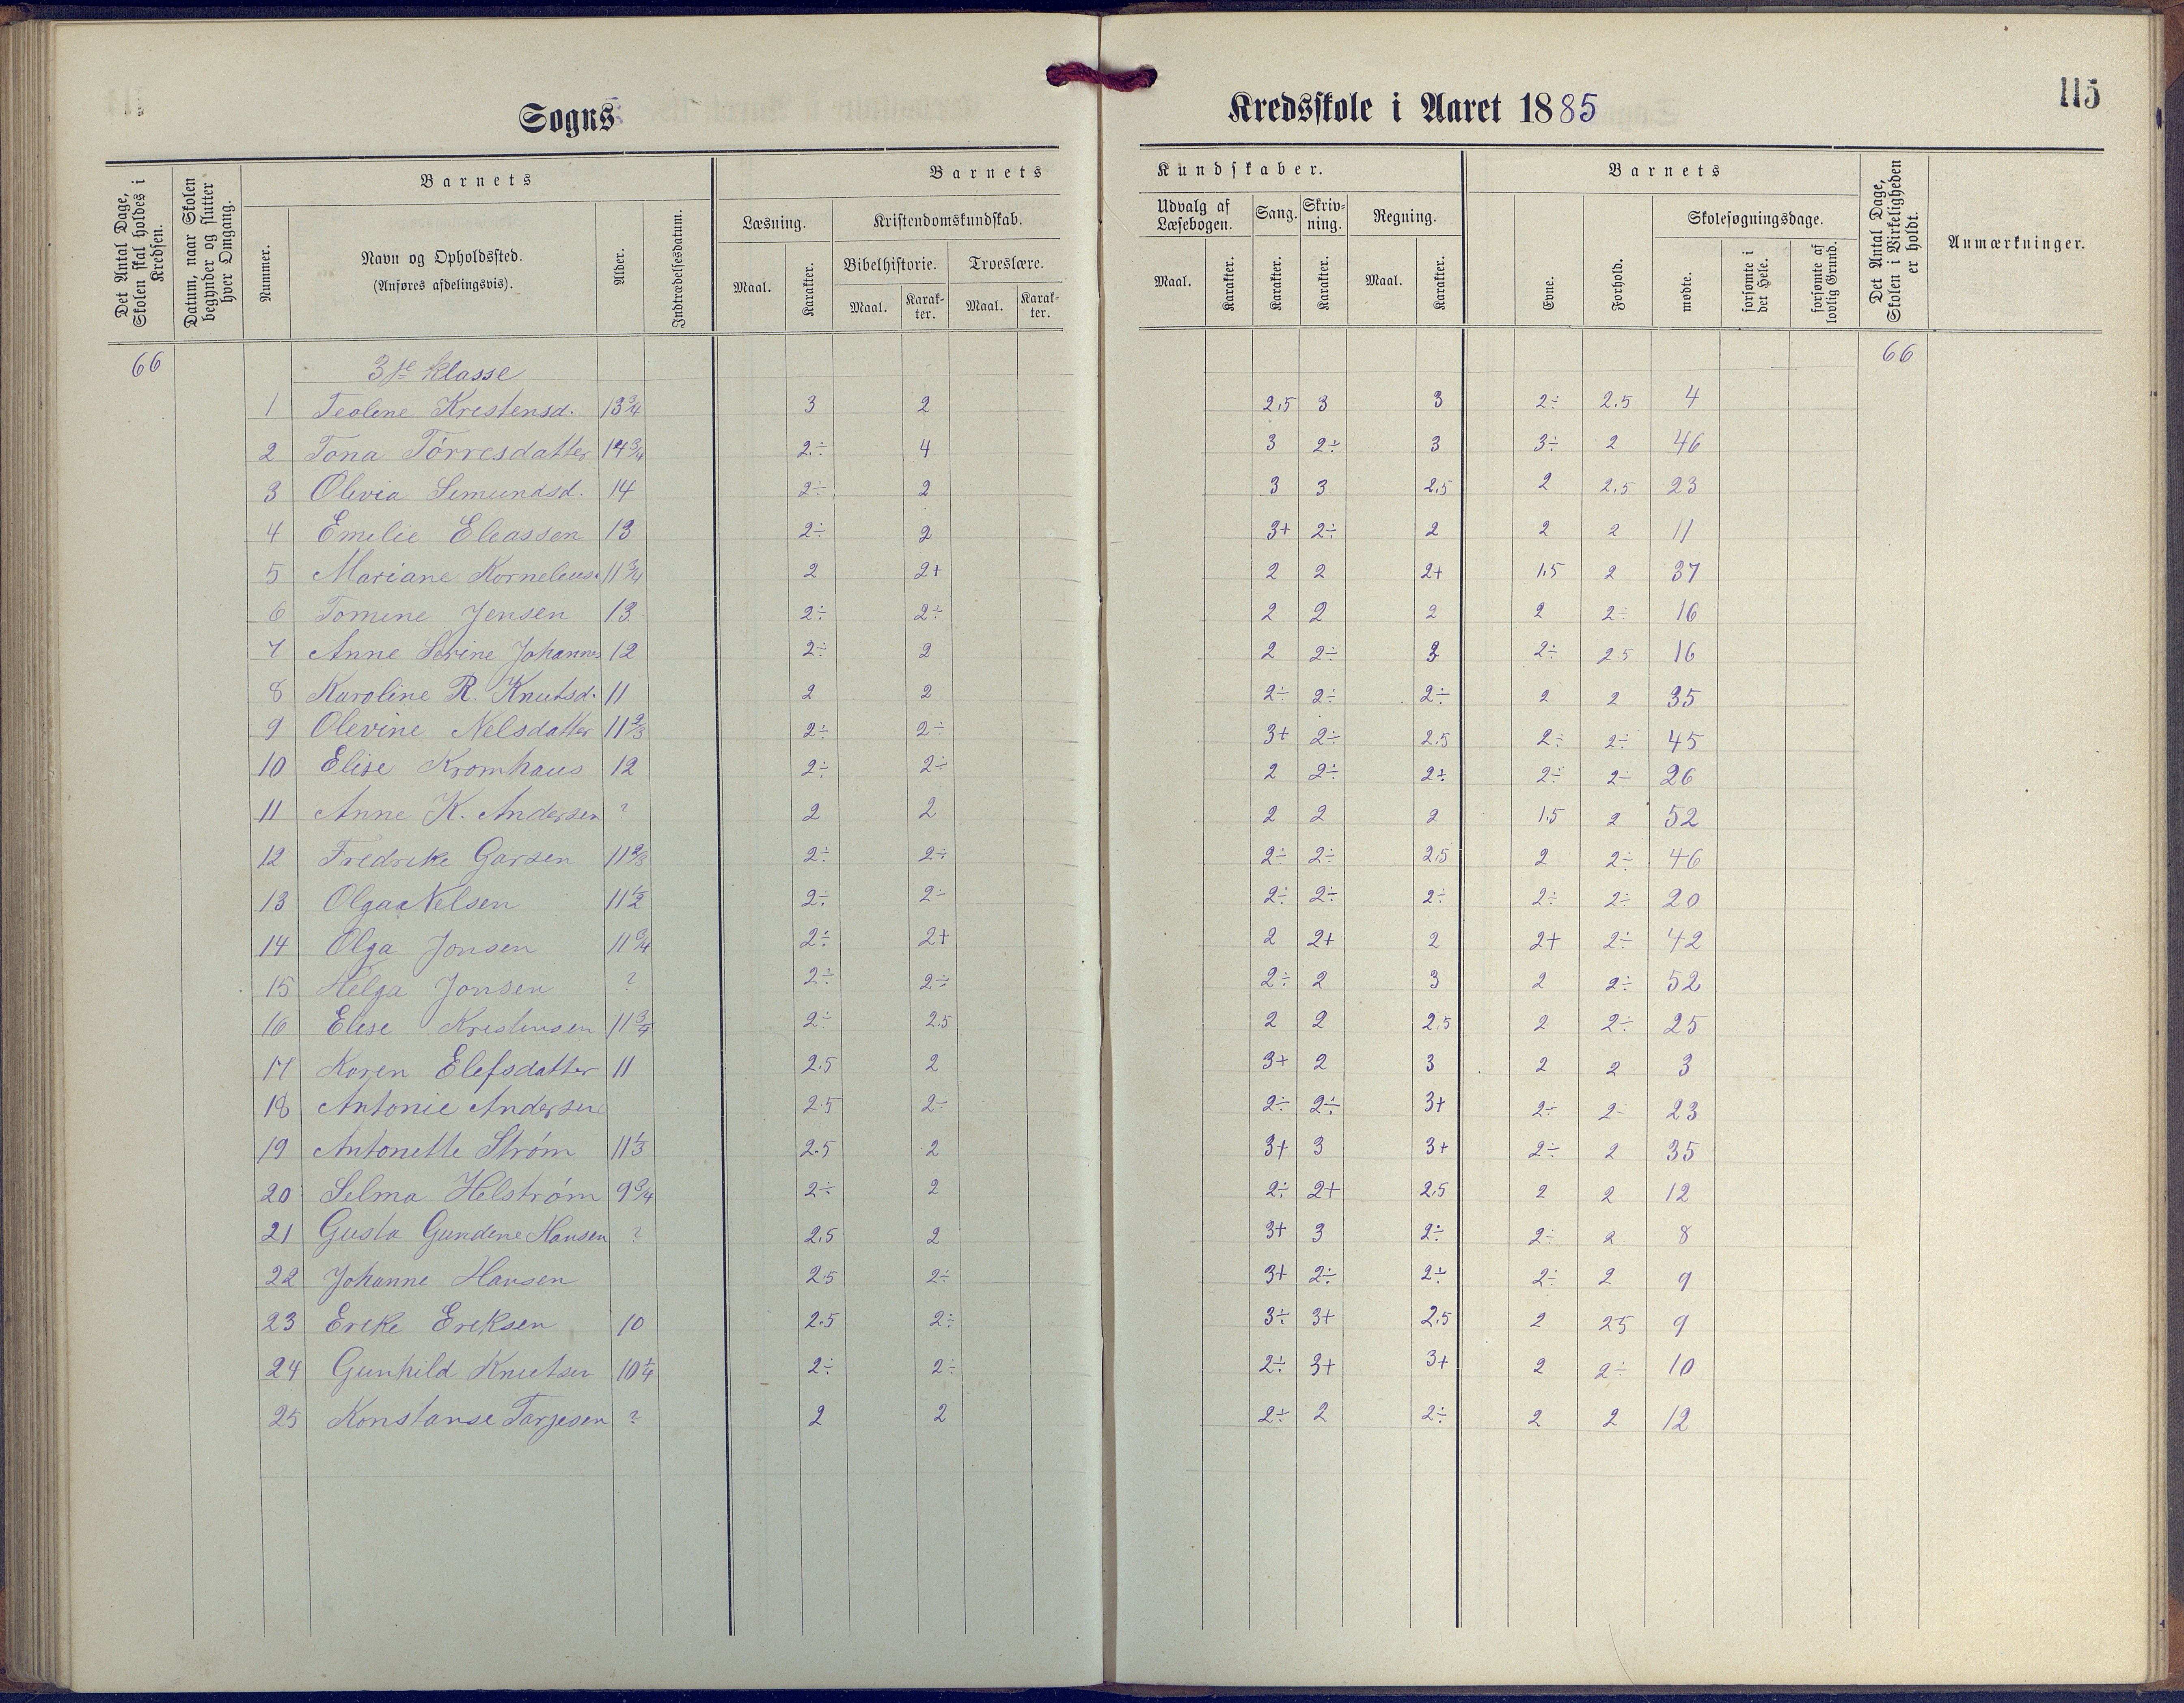 Sogns Kredsskole i Aaret 1885 115
Det Antal Dage, Skolen skal holdes i Kredsen. Datum, naar Skolen begynder og slutter hver Omgang. Barnets Barnets Kundskaber. Barnets Det Antal Dage, Skolen i Virkeligheden er holdt. Anmærkninger.
Nummer. Navn og Opholdssted. (Anføres afdelingsvis). Alder. Indtrædelsesdatum. Læsning. Kristendomskundskab. Udvalg af Læsebogen. Sang. Skrivning. Regning. Evne. Forhold. Skolesøgningsdage.
Maal. Karakter. Bibelhistorie. Troeslære. Maal. Karakter. Karakter. Karakter. Maal. Karakter. mødte. forsømte i det Hele. forsømte af lovlig Grund.
Maal. Karakter. Maal. Karakter.
66 3die Klasse 66
1 Teoline Kristensd. 13 3/4 3 2 2.5 3 3 2÷ 2.5 4
2 Tona Tørresdatter 14 3/4 2÷ 4 3 2÷ 3 3÷ 2 46
3 Olivia Simundsd. 14 2÷ 2 3 3 2.5 2 2.5 23
4 Emilie Eleassen 13 2÷ 2 3+ 2÷ 2 2 2 11
5 Mariane Korneliusd 11 3/4 2 2+ 2 2 2+ 1.5 2 37
6 Tomine Jensen 13 2÷ 2÷ 2 2 2 2 2÷ 16
7 Anne Serine Johannes 12 2÷ 2 2 2÷ 3 2÷ 2.5 16
8 Karoline R. Knutsd. 11 2 2 2÷ 2÷ 2÷ 2 2 35
9 Olevine Nelsdatter 11 2/3 2÷ 2÷ 3+ 2÷ 2.5 2÷ 2÷ 45
10 Elise Kromhaus 12 2÷ 2÷ 2 2÷ 2÷ 2÷ 2÷ 26
11 Anne K. Andersen ? 2 2 2 2 2 1.5 2 52
12 Fredrike Garsen 11 2/3 2÷ 2÷ 2÷ 2÷ 2.5 2 2÷ 46
13 Olga Nelsen 11 1/2 2÷ 2÷ 2÷ 2÷ 2÷ 2÷ 2÷ 20
14 Olga Jonsen 11 3/4 2÷ 2+ 2 2+ 2 2+ 2÷ 42
15 Helga Jonsen ? 2÷ 2÷ 2÷ 2 3 2 2÷ 52
16 Elise Kristensen 11 3/4 2÷ 2.5 2 2 2.5 2 2÷ 25
17 Karen Elefsdatter 11 2.5 2 3+ 2 3 2 2 3
18 Antonie Andersen 2.5 2÷ 2÷ 2÷ 3+ 2÷ 2÷ 23
19 Antonette Strøm 11 1/3 2.5 2 3+ 3 3+ 2÷ 2 35
20 Selma Helstrøm 9 3/4 2÷ 2 2÷ 2+ 2.5 2 2 12
21 Gusta Gundine Hansen ? 2.5 2 3+ 3 2÷ 2÷ 2 8
22 Johanne Hansen 2.5 2÷ 3+ 2÷ 2÷ 2÷ 2 9
23 Erike Eriksen 10 2.5 2÷ 3÷ 3+ 2.5 2 25 9
24 Gunhild Knutsen 10 1/4 2÷ 2÷ 2÷ 3+ 3+ 2 2÷ 10
25 Konstanse Tarjesen ? 2 2 2÷ 2 2÷ 2 2 12